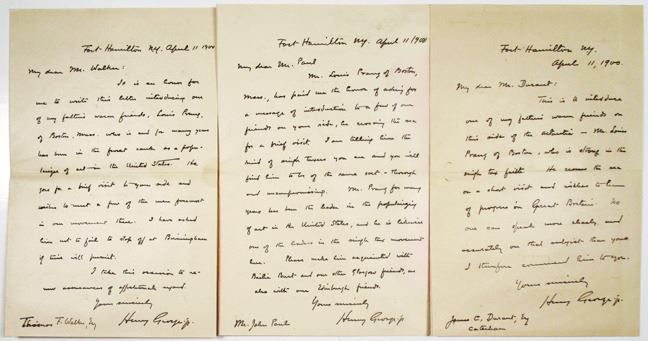 Fort Hamilton NY. April 11 1900
My dear Mr. Walker:
It is an honor for
me to write this letter introducing one
of my father's warm friends, Louis Prang,
of Boston, Mass. who is and for many years
has been in the front ranks as a popu-
larizer of art in the United States. He
goes for a brief visit to your side and
wishes to meet a few of the men foremost
in our movement there. I have asked
him not to fail to stop off at Birmingham
if time will permit.
I take this occasion to re-
new assurances of affectionate regard.
Yours sincerely
Henry George jr.
Thomas F. Walker, Esq
Fort Hamilton NY. April 11/1900
My dear Mr. Paul
Mr. Louis Prang of Boston,
Mass., has paid me the honor of asking for
a message of introduction to a few of our
friends on your side, he crossing the sea
for a brief visit. I am telling him the
kind of single taxers you are and you will
find him to be of the same sort - through
and uncompromising. Mr. Prang for many
years has been the leader in the popularizing
of art in the United States, and he is likewise
one of the leaders in the single tax movement
here. Please make him acquainted with
Bailie Burt and our other Glasgow friends, as
also with our Edinburgh friends.
Yours sincerely
Henry George jr
Mr. John Paul
Fort Hamilton NY.
April 11, 1900.
My dear Mr. Durant:
This is to introduce
one of my father's warm friends on
this side of the Atlantic - Mr Louis
Prang of Boston, who is strong in the
single tax faith. He crosses the sea
on a short visit and wishes to learn
of progress in Great Britain. No
one can speak more clearly and
accurately on that subject than you
I therefore commend him to you.
Yours sincerely
Henry George jr.
James C. Durant, Esq
Caterham